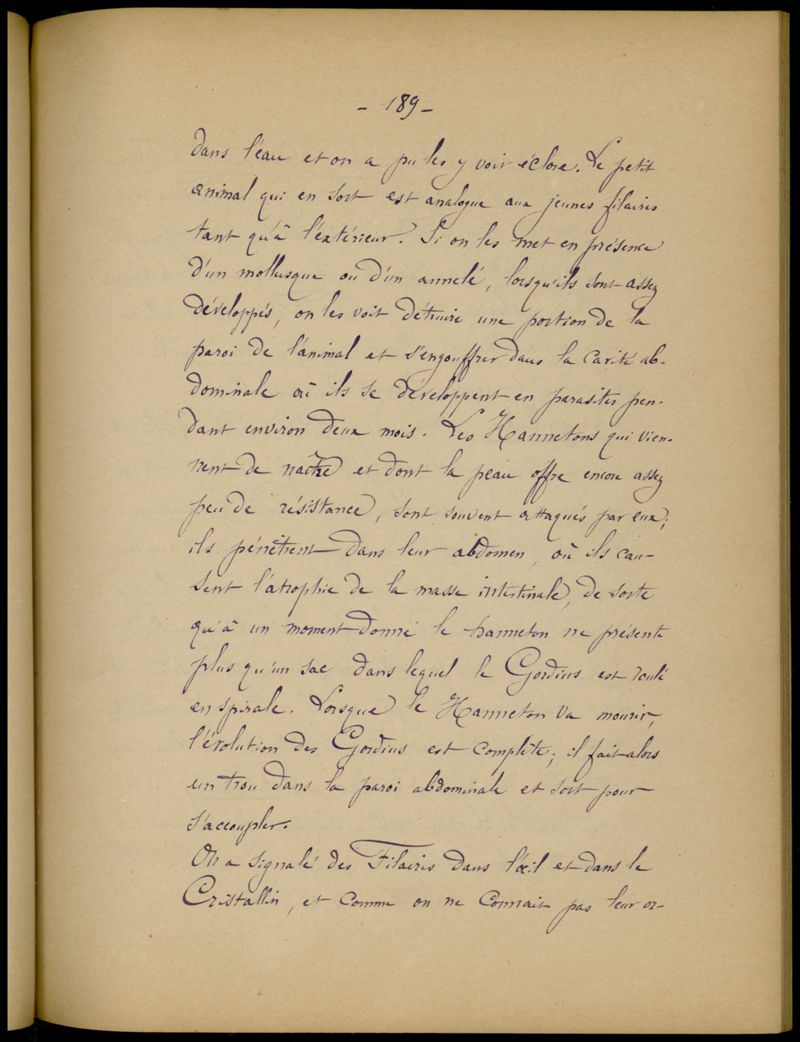 - 189 -
dans l'eau et on a pu les y voir éclore. Le petit
animal qui en sort est analogue aux jeunes filaires
tant qu'à l'extérieur. Si on les met en présence
d'un mollusque ou d'un annelé, lorsqu'ils sont assez
développés, on les voit détruire une portion de la
paroi de l'animal et s'engouffrer dans la cavité ab-
dominale où ils se développent en parasites pen-
dant environ deux mois. Les Hannetons qui vien-
nent de naître et dont la peau offre encore assez
peu de résistance, sont souvent attaqués par eux;
ils pénètrent dans leur abdomen, où ils cau-
sent l'atrophie de la masse intestinale, de sorte
qu'à un moment donné le hanneton ne présente
plus qu'un sac dans lequel le Gordius est roulé
en spirale. Lorsque le Hanneton va mourir,
l'évolution des Gordius est complète; il fait alors
un trou dans la paroi abdominale et sort pour
s'accoupler.
On a signalé des Filaires dans l'œil et dans le
Cristallin, et comme on ne connait pas leur or-